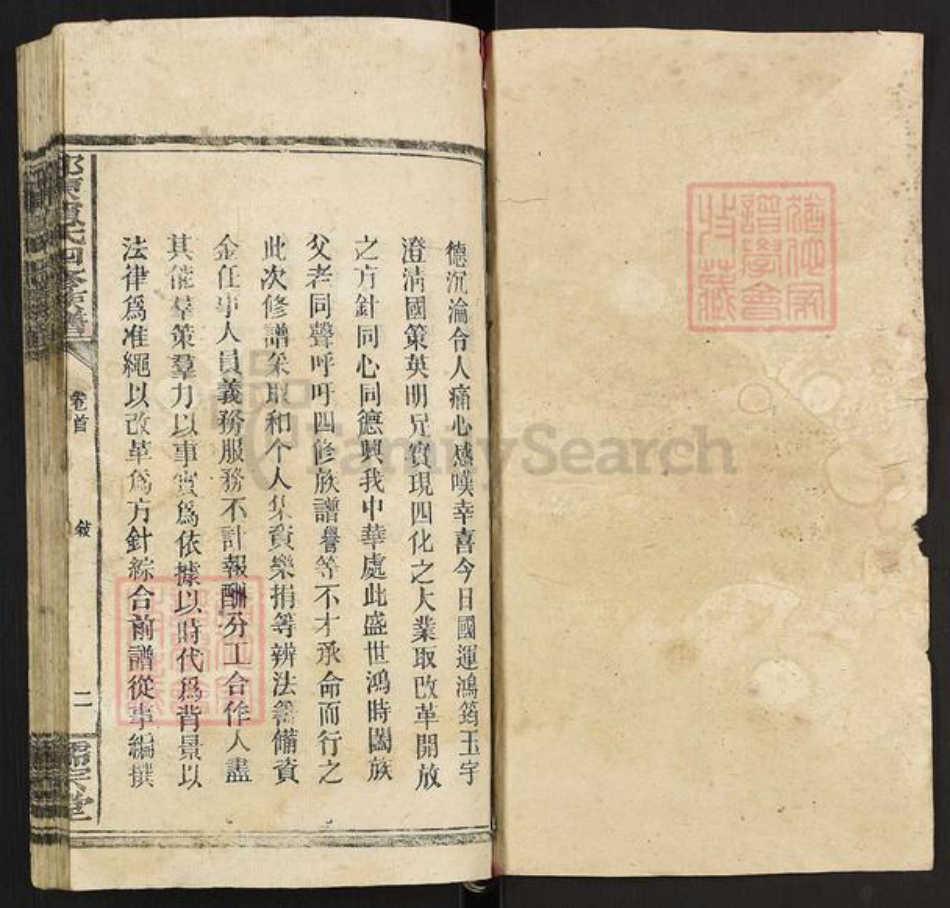 德沉淪令人痛心感嘆幸喜今日國運鴻筠玉宇
澄清國策英明兄實現四化之大業取改革開放
之方針同心同德興我中華處此盛世鴻時闔族
父老同聲呼吁四修族譜譽等不才承命而行之
此次修譜采取和个人集資樂捐等辨法籌備資
金任事人員義務服務不計報酬分工合作人盡
其能羣策羣力以事實爲依據以時代爲背景以
法律爲准繩以改革爲方針綜合前譜從事編撰
氏四修族譜
卷首
敍
二
儒宗堂
譜學會
收藏
FamilySearch